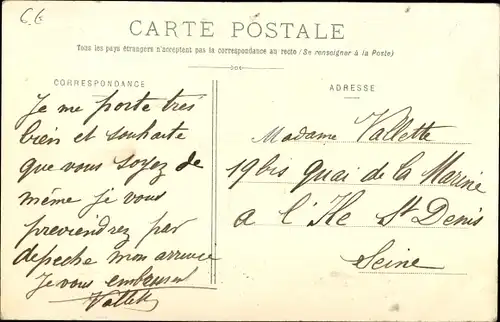 C6
CARTE POSTALE
Tous les pays étrangers n'acceptent pas la correspondance au recto (Se renseigner à la Poste)
CORRESPONDANCE
ADRESSE
Je me porte très
bien et souhaite
que vous soyez de
même je vous
previendrez par
depeche mon arrivee
Je vous embrassent
Vallette
Madame Vallette
19 bis quai de la Marine
a l'Ile St Denis
Seine